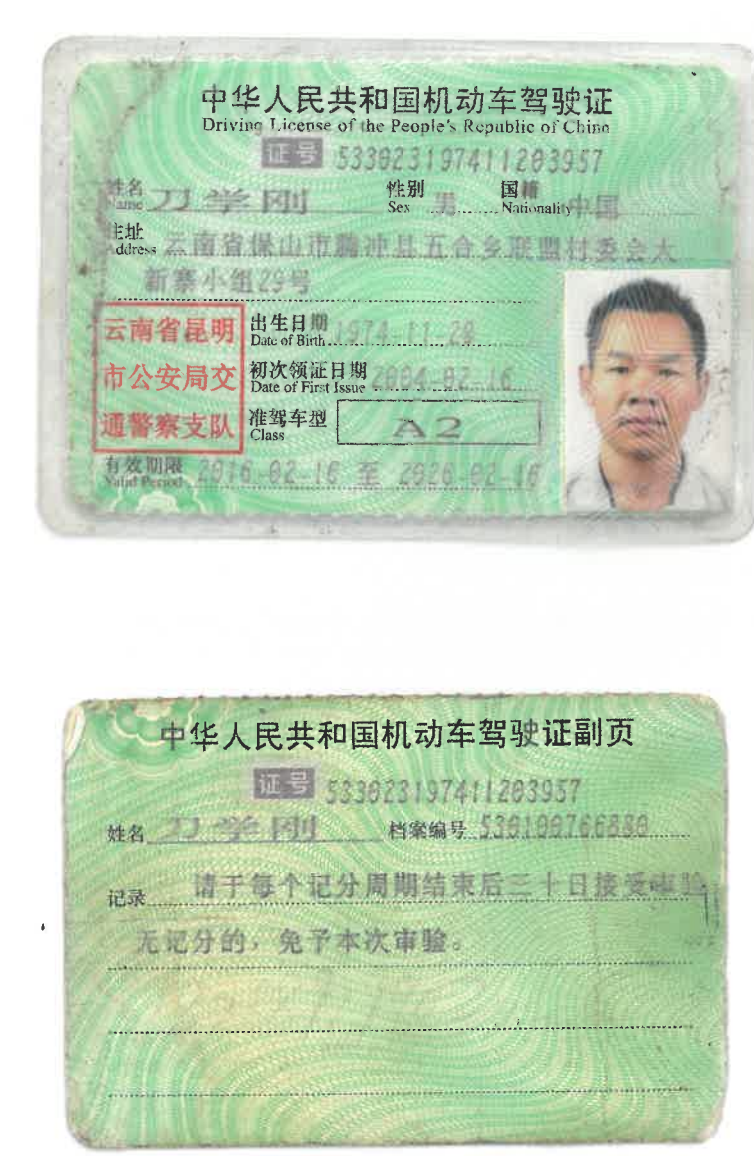 中华人民共和国机动车驾驶证
Driving License of the People's Republic of China
证号 533023197411203957
姓名 刀学刚 性别 男 国籍 中国
Name Sex Nationality
住址 云南省保山市腾冲县五合乡联盟村委会大
Address
新寨小组29号
云南省昆明
市公安局交
通警察支队
出生日期 1974-11-20
Date of Birth
初次领证日期 2004-02-16
Date of First Issue
准驾车型 A2
Class
有效期限 2016-02-16 至 2026-02-16
Valid Period
中华人民共和国机动车驾驶证副页
证号 533023197411203957
姓名 刀学刚 档案编号 530100766880
记录 请于每个记分周期结束后三十日接受审验
无记分的，免予本次审验。